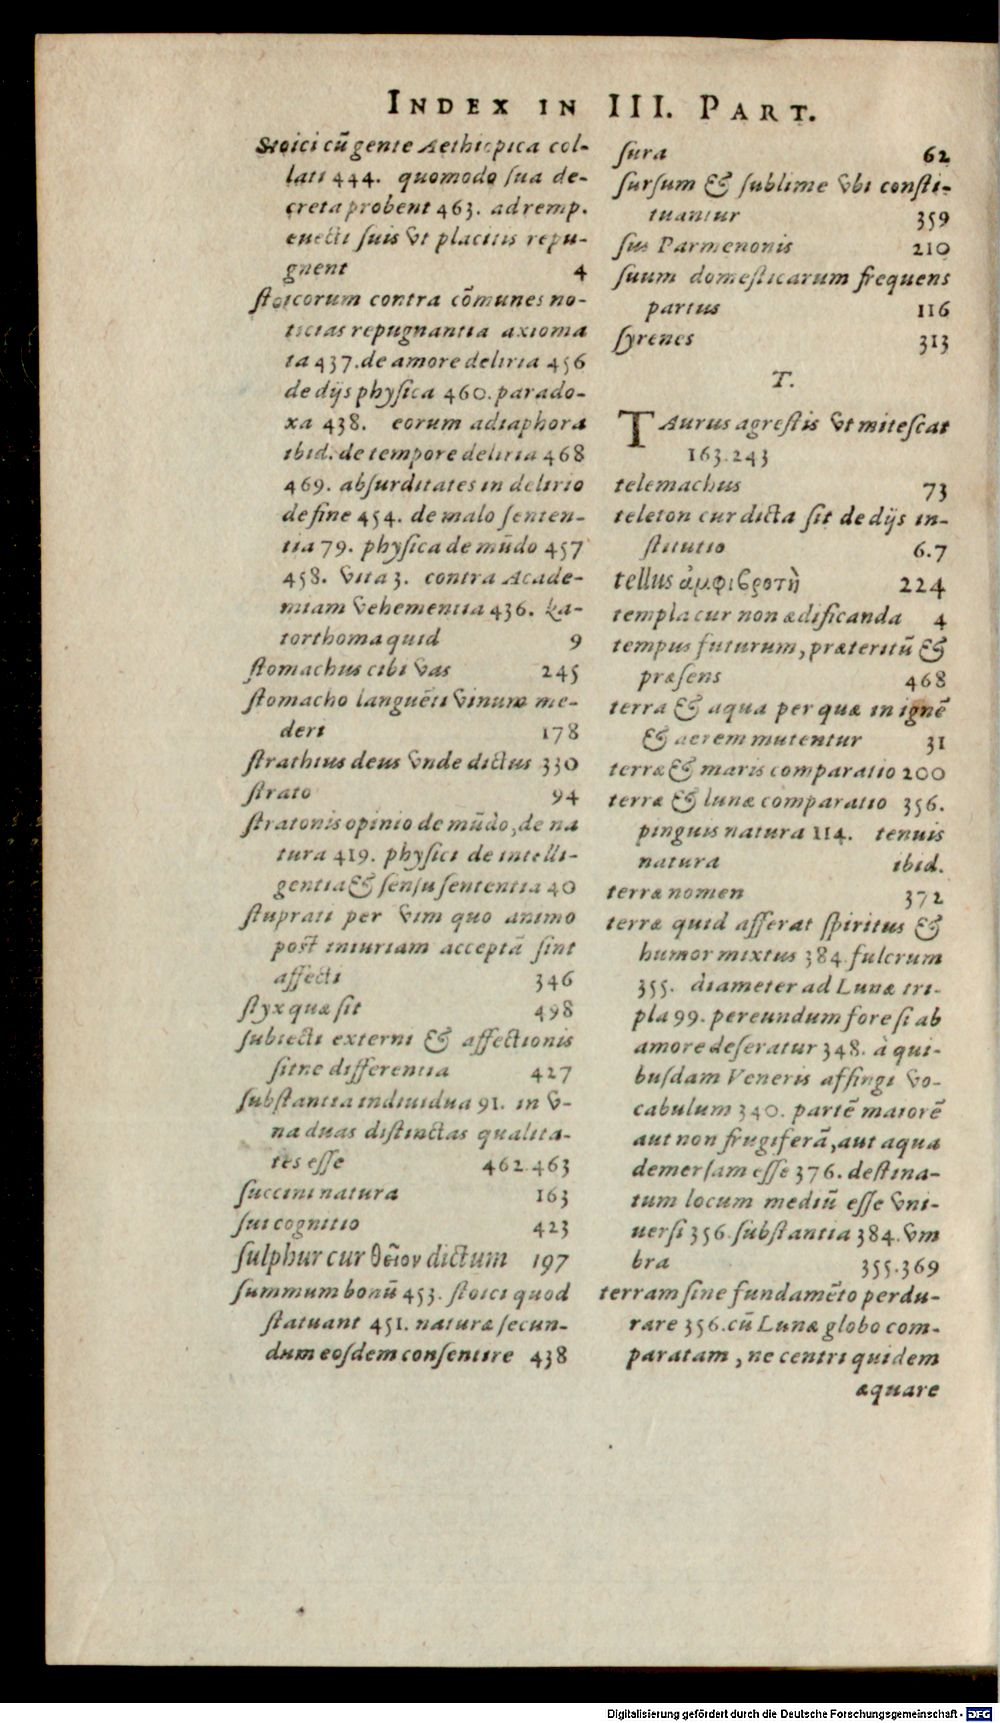 INDEX IN III. PART.
Stoici cũ gente Aethiopica col-
lati 444. quomodo sua de-
creta probent 463. ad remp.
euecti suis vt placitis repu-
gnent 4
stoicorum contra cõmunes no-
titias repugnantia axioma
ta 437. de amore deliria 456
de dijs physica 460. parado-
xa 438. eorum adiaphora
ibid. de tempore deliria 468
469. absurditates in delirio
de fine 454. de malo senten-
tia 79. physica de mũdo 457
458. vita 3. contra Acade-
miam vehementia 436. ka-
torthoma quid 9
stomachus cibi vas 245
stomacho languẽti vinum me-
deri 178
strathius deus vnde dictus 330
strato 94
stratonis opinio de mũdo, de na
tura 419. physici de intelli-
gentia & sensu sententia 40
stuprati per vim quo animo
post iniuriam acceptã sint
affecti 346
styx quæ sit 498
subiecti externi & affectionis
sitne differentia 427
substantia indiuidua 91. in v-
na duas distinctas qualita-
tes esse 462.463
succini natura 163
sui cognitio 423
sulphur cur θεῖον dictum 197
summum bonũ 453. stoici quod
statuant 451. naturæ secun-
dum eosdem consentire 438
sura 62
sursum & sublime vbi consti-
tuantur 359
sus Parmenonis 210
suum domesticarum frequens
partus 116
syrenes 313
T.
TAurus agrestis vt mitescat
163.243
telemachus 73
teleton cur dicta sit de dijs in-
stitutio 6.7
tellus ἀμφιβροτὴ 224
templa cur non ædificanda 4
tempus futurum, præteritũ &
præsens 468
terra & aqua per quæ in ignẽ
& aerem mutentur 31
terræ & maris comparatio 200
terræ & lunæ comparatio 356.
pinguis natura 114. tenuis
natura ibid.
terræ nomen 372
terræ quid afferat spiritus &
humor mixtus 384. fulcrum
355. diameter ad Lunæ tri-
pla 99. pereundum fore si ab
amore deseratur 348. à qui-
busdam Veneris affingi vo-
cabulum 340. partẽ maiorẽ
aut non frugiferã, aut aqua
demersam esse 376. destina-
tum locum mediũ esse vni-
uersi 356. substantia 384. vm
bra 355.369
terram sine fundamẽto perdu-
rare 356. cũ Lunæ globo com-
paratam, ne centri quidem
æquare
Digitalisierung gefördert durch die Deutsche Forschungsgemeinschaft - DFG